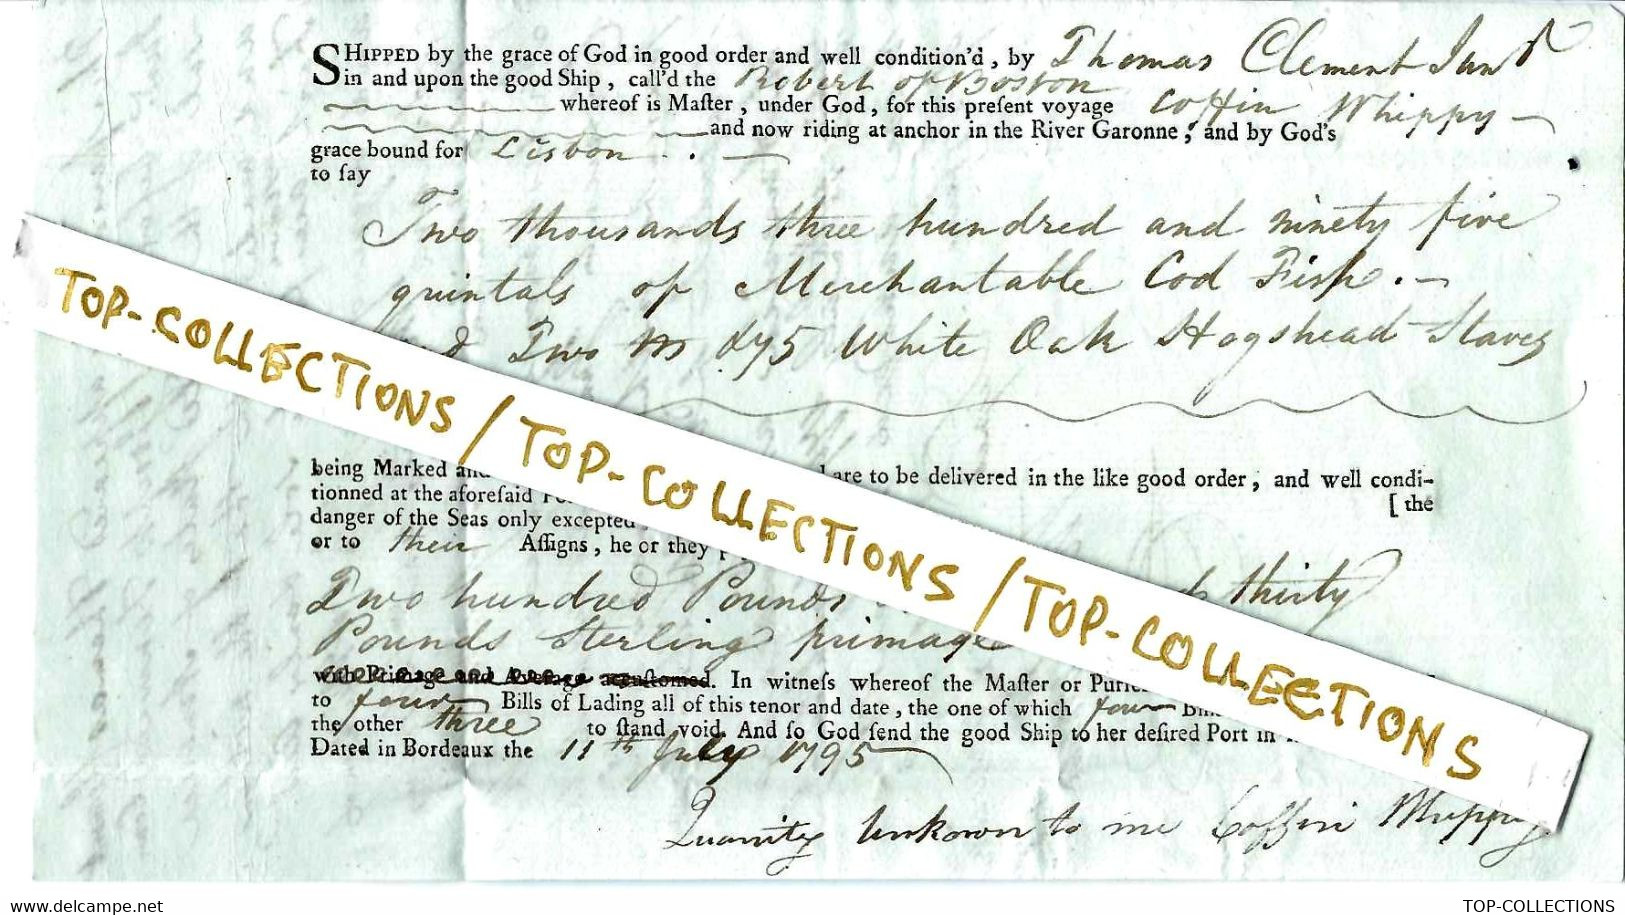 SHIPPED by the grace of God in good order and well condition'd, by Thomas Clement Junr
in and upon the good Ship, call'd the Robert of Boston
whereof is Maſter, under God, for this preſent voyage Coffin Whippy
and now riding at anchor in the River Garonne, and by God's
grace bound for Lisbon
to ſay
Two thousands three hundred and ninety five
quintals of Merchantable Cod Fish.
Two m White Oak Hogshead Staves
being Marked are to be delivered in the like good order, and well condi-
tionned at the aforeſaid [the
danger of the Seas only excepted
or to their Aſſigns, he or they
Two hundred Pounds thirty
Pounds Sterling primage
with Primage and Average accuſtomed. In witneſs whereof the Maſter or
to four Bills of Lading all of this tenor and date, the one of which four
the other three to ſtand void. And ſo God ſend the good Ship to her deſired Port in
Dated in Bordeaux the 11th July 1795
Quantity Unknown to me Coffin Whippy
TOP-COLLECTIONS / TOP-COLLECTIONS / TOP-COLLECTIONS
www.delcampe.net TOP-COLLECTIONS